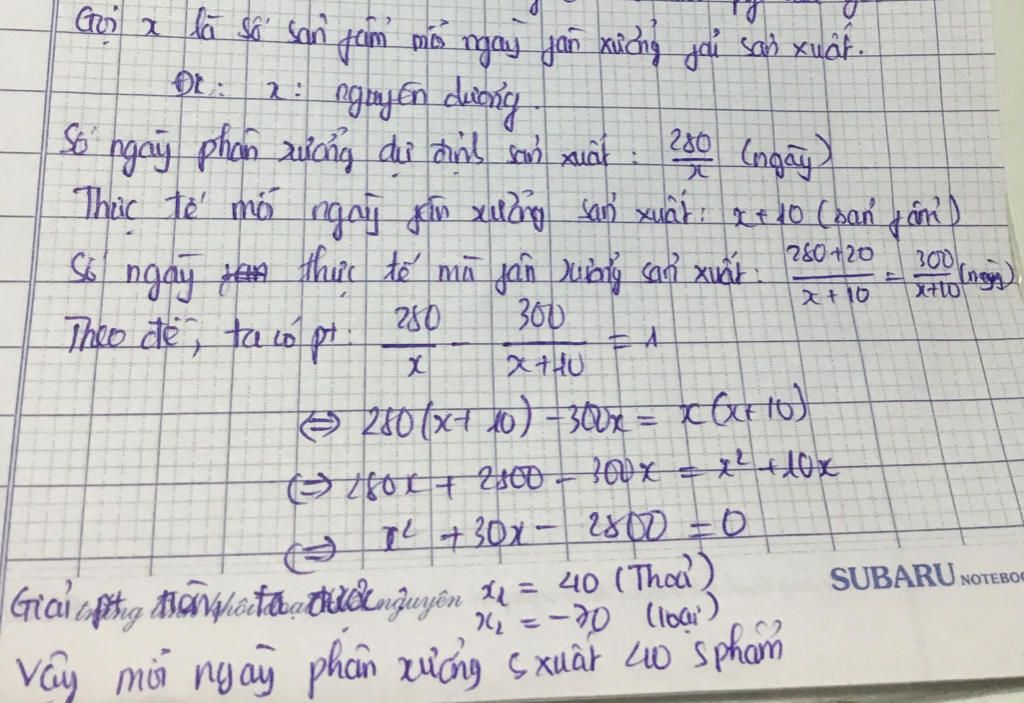 Gọi x là số sản fẩm mỗi ngày fân xưởng fải sản xuất.
Đk: x: nguyên dương.
Số ngày phân xưởng dự định sản xuất: 280/x (ngày)
Thực tế mỗi ngày fân xưởng sản xuất: x+10 (sản fẩm)
Số ngày thực tế mà fân xưởng sản xuất: (280+20)/(x+10) = 300/(x+10) (ngày)
Theo đề, ta có pt: 280/x - 300/(x+10) = 1
⇔ 280(x+10) - 300x = x(x+10)
⇔ 280x + 2800 - 300x = x² + 10x
⇔ x² + 30x - 2800 = 0
SUBARU NOTEBO
Giải pt trên ta được nguyên x₁ = 40 (Thoả)
x₂ = -70 (loại)
Vậy mỗi ngày phân xưởng s xuất 40 s phẩm